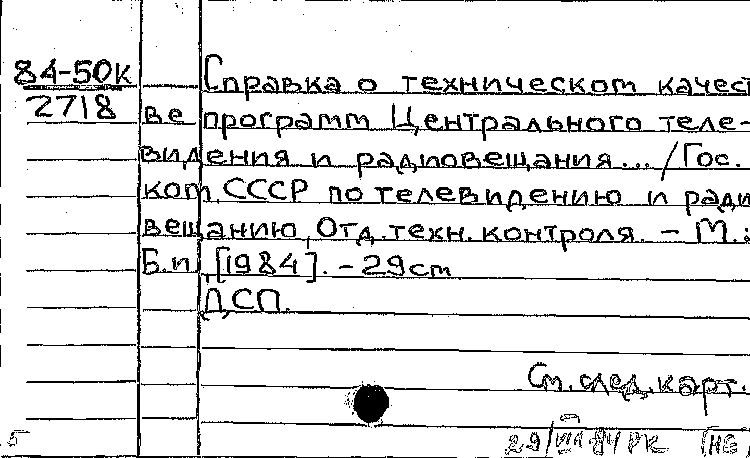 84-50к
2718
Справка о техническом качест
ве программ Центрального теле-
видения и радиовещания... / Гос.
ком. СССР по телевидению и ради
вещанию, Отд. техн. контроля. - М.:
Б.и., [1984]. - 29 см
ДСП.
См. след. карт.
5
29/VIII-84 РК [НБ]